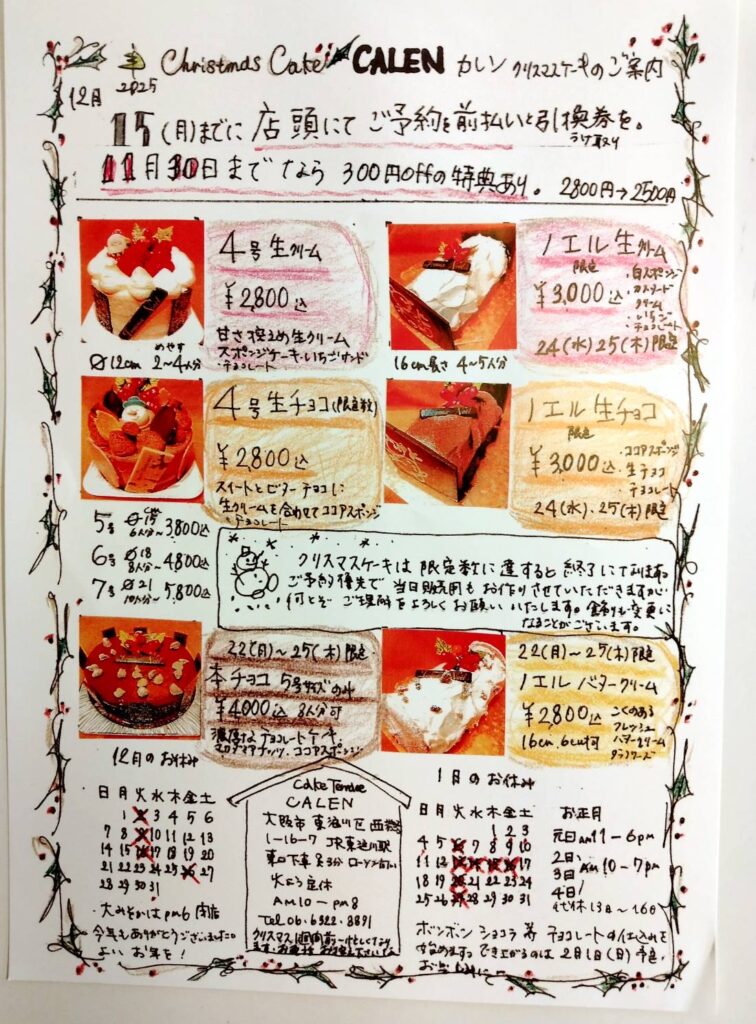 2025 Christmas Cake CALEN カレン クリスマスケーキのご案内
12月
15(月)までに店頭にてご予約を前払いと引換券を。
うけ取り
11月30日までなら 300円offの特典あり。 2800円→2500円
4号生クリーム
¥2,800込
甘さ控えめ生クリーム
スポンジケーキ・いちごサンド
・チョコレート
めやす
Ø12cm 2~4人分
ノエル生クリーム
限定
¥3,000込
・白スポンジ
・カスタード
クリーム
・いちご
・チョコレート
24(水)25(木)限定
16cm長さ 4~5人分
4号生チョコ(限定数)
¥2,800込
スイートとビターチョコに
生クリームを合わせてココアスポンジ
・チョコレート
ノエル生チョコ
限定
¥3,000込
・ココアスポンジ
・生チョコ
・チョコレート
24(水)、25(木)限定
5号 Ø15 6人分~ 3,800込
6号 Ø18 8人分~ 4800込
7号 Ø21 10人分~ 5,800込
クリスマスケーキは限定数に達すると終了になります。
ご予約優先で当日販売用もお作りさせていただきますが
何とぞご理解をよろしくお願いいたします。飾りも変更に
なることがございます。
22(月)~25(木)限定
本チョコ 5号サイズのみ
¥4000込 8人分可
濃厚なチョコレートケーキ
マカダミアナッツ、ココアスポンジ
22(月)~25(木)限定
ノエル バタークリーム
¥2,800込
16cm、6cm村
こくのある
フレッシュ
バタークリーム
12月のお休み
日月火水木金土
1 2 3 4 5 6
7 8 9 10 11 12 13
14 15 16 17 18 19 20
21 22 23 24 25 26 27
28 29 30 31
・大みそかはpm6閉店
今年もありがとうございました。
よいお年を!
Cake Terrace
CALEN
大阪市東淀川区西淡路
1-16-7 JR東淀川駅
東口下車 歩3分 ローソン
火よう定休
AM10-pm8
Tel 06.6322.8891
1月のお休み
日月火水木金土
1 2 3
4 5 6 7 8 9 10
11 12 13 14 15 16 17
18 19 20 21 22 23 24
25 26 27 28 29 30 31
お正月
元日am11-6pm
2日、
3日 AM10-7pm
4日
代休13日~16日
ボンボンショコラ等チョコレートの仕込みを
始めます。でき上がるのは2月1日(日)予定。